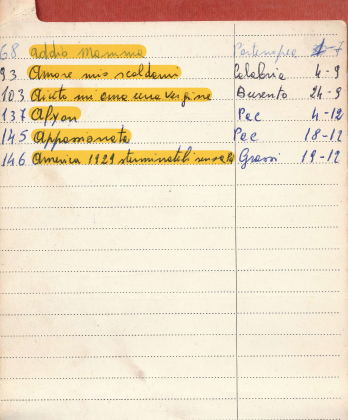 68 addio mamma Partenopeo 7
93 Amore mio scaldami Calabria 4-9
103 Aiuto mi ama una vergine Ausento 24-9
137 Afyon Pac 4-12
145 Appassionata Pac 18-12
146 America 1929 sterminateli senza Grassi 19-12